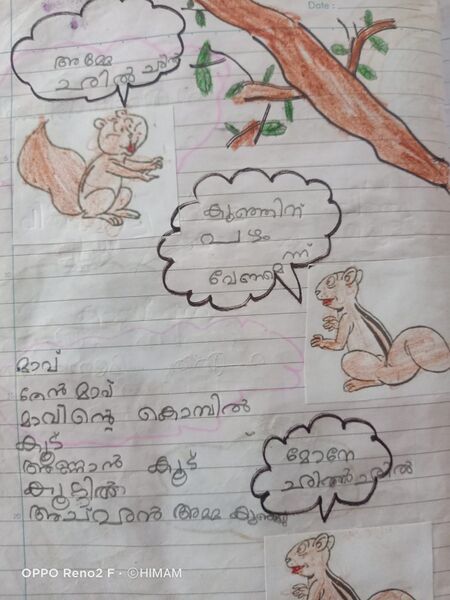 Date :
അമ്മേ
ചരിൽ ചരിൽ
കുഞ്ഞിന്
പഴം
മാവ്
തേൻ മാവ്
മാവിന്റെ കൊമ്പിൽ
കൂട്
അണ്ണാൻ കൂട്
കൂട്ടിൽ
അമ്മ കുഞ്ഞു
മോനേ
ചരിൽ ചരിൽ
OPPO Reno2 F · ©HIMAM